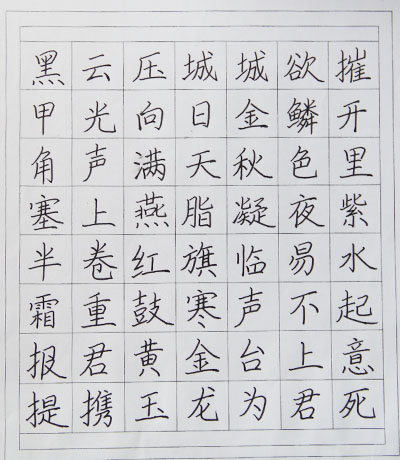 黑云压城城欲摧
甲光向日金鳞开
角声满天秋色里
塞上燕脂凝夜紫
半卷红旗临易水
霜重鼓寒声不起
报君黄金台上意
提携玉龙为君死